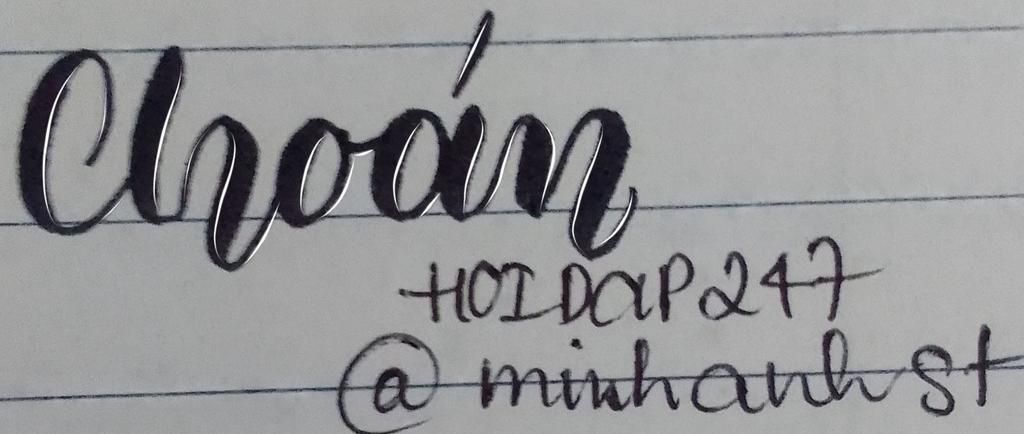 Choán
HOIDaP247
@minhanhst